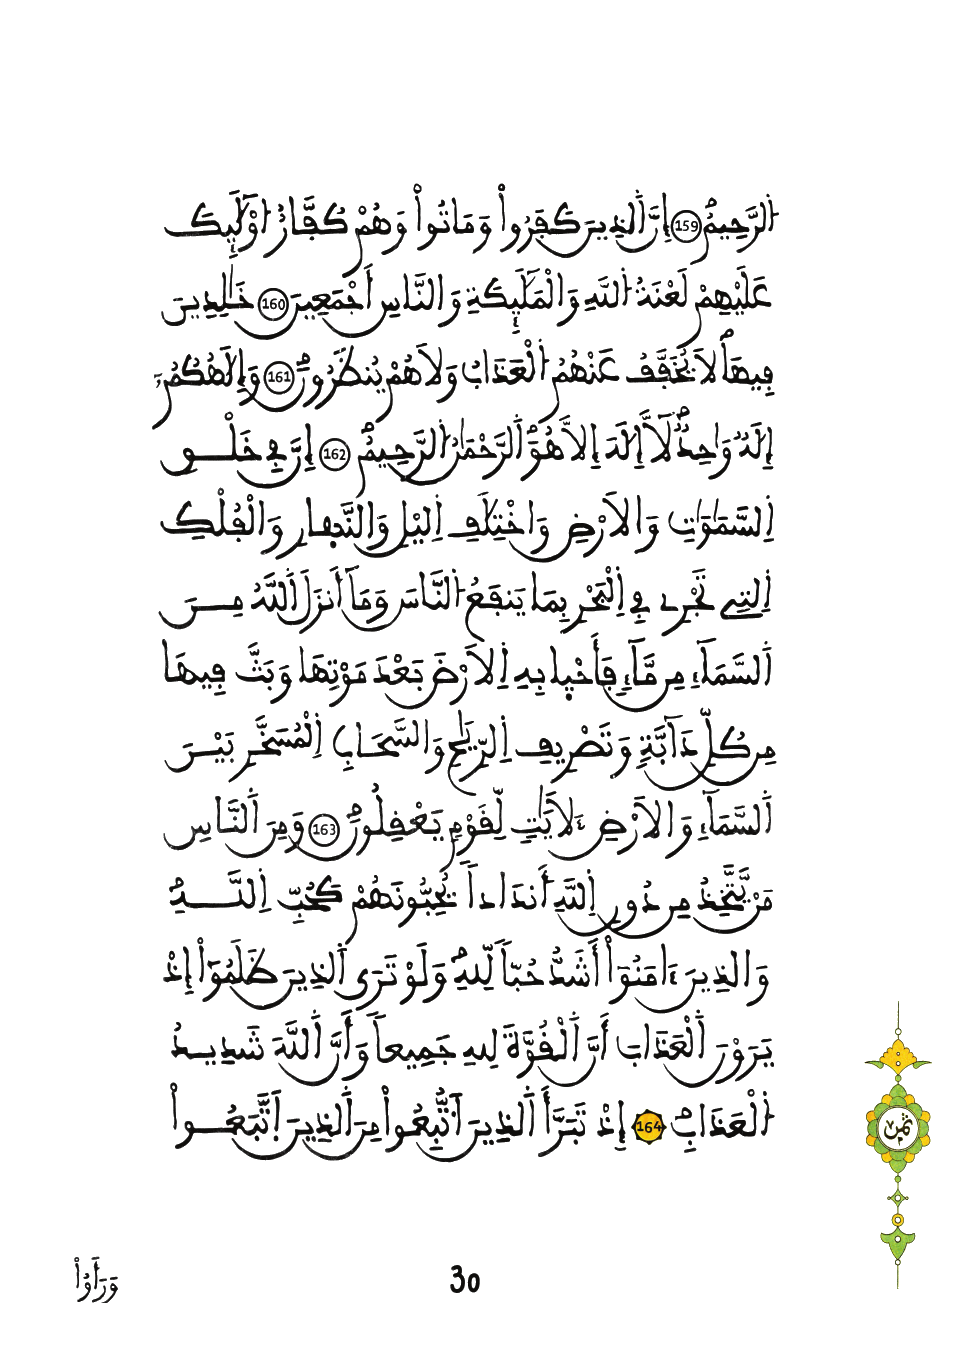 اُ۬لرَّحِيمُۖ 159 إِنَّ اَ۬لذِينَ كَفَرُواْ وَمَاتُواْ وَهُمْ كُفَّارٌ اُوْلَٰٓئِكَ
عَلَيْهِمْ لَعْنَةُ اُ۬للَّهِ وَالْمَلَٰٓئِكَةِ وَالنَّاسِ أَجْمَعِينَ 160 خَٰلِدِينَ
فِيهَاۖ لَا يُخَفَّفُ عَنْهُمُ اُ۬لْعَذَابُ وَلَا هُمْ يُنظَرُونَۖ 161 وَإِلَٰهُكُمُۥٓ
إِلَٰهٞ وَٰحِدٞۖ لَّآ إِلَٰهَ إِلَّا هُوَۖ اَ۬لرَّحْمَٰنُ اُ۬لرَّحِيمُۖ 162 إِنَّ فِے خَلْقِ
اِ۬لسَّمَٰوَٰتِ وَالَارْضِ وَاخْتِلَٰفِ اِ۬ليْلِ وَالنَّهارِ وَالْفُلْكِ
اِ۬لتِے تَجْرِے فِے اِ۬لْبَحْرِ بِمَا يَنفَعُ اُ۬لنَّاسَ وَمَآ أَنزَلَ اَ۬للَّهُ مِنَ
اَ۬لسَّمَآءِ مِن مَّآءٖ فَأَحْيا بِهِ اِ۬لَارْضَ بَعْدَ مَوْتِهَا وَبَثَّ فِيهَا
مِن كُلِّ دَآبَّةٖ وَتَصْرِيفِ اِ۬لرِّيَٰحِ وَالسَّحَابِ اِ۬لْمُسَخَّرِ بَيْنَ
اَ۬لسَّمَآءِ وَالَارْضِ ءَلَايَٰتٖ لِّقَوْمٖ يَعْقِلُونَۖ 163 وَمِنَ اَ۬لنَّاسِ
مَنْ يَّتَّخِذُ مِن دُونِ اِ۬للَّهِ أَندَاداٗ يُحِبُّونَهُمْ كَحُبِّ اِ۬للَّهِۖ
وَالذِينَ ءَامَنُوٓاْ أَشَدُّ حُبّاٗ لِّلهِۖ وَلَوْ تَرَى اَ۬لذِينَ ظَلَمُوٓاْ إِذْ
يَرَوْنَ اَ۬لْعَذَابَ أَنَّ اَ۬لْقُوَّةَ لِلهِ جَمِيعاٗ وَأَنَّ اَ۬للَّهَ شَدِيدُ
اُ۬لْعَذَابِۖ 164 إِذْ تَبَرَّأَ اَ۬لذِينَ اَ۟تُّبِعُواْ مِنَ اَ۬لذِينَ اَ۪تَّبَعُواْ
ثمن
وَرَأَوُاْ
30